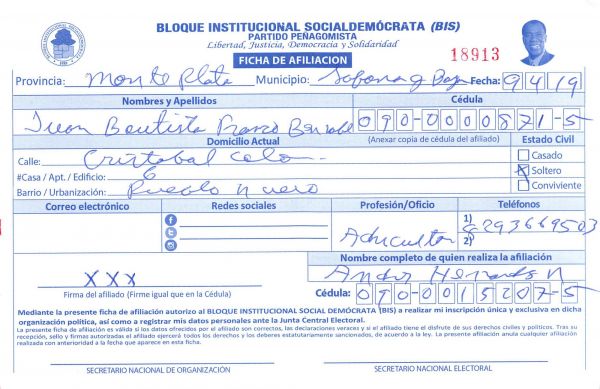 BLOQUE INSTITUCIONAL SOCIALDEMÓCRATA (BIS)
PARTIDO PEÑAGOMISTA
Libertad, Justicia, Democracia y Solidaridad
FICHA DE AFILIACION
18913
Provincia: Monte Plata Municipio: Fecha: 9 4 19
Nombres y Apellidos Cédula
Juan Bautista Franco 090-0000871-5
Domicilio Actual (Anexar copia de cédula del afiliado) Estado Civil
Calle: Cristobal Colon Casado
#Casa / Apt. / Edificio: 6 X Soltero
Barrio / Urbanización: Pueblo Nuevo Conviviente
Correo electrónico Redes sociales Profesión/Oficio Teléfonos
1) 8293669503
2)
Nombre completo de quien realiza la afiliación
XXX
Firma del afiliado (Firme igual que en la Cédula) Cédula: 090-0015207-5
Mediante la presente ficha de afiliación autorizo al BLOQUE INSTITUCIONAL SOCIAL DEMÓCRATA (BIS) a realizar mi inscripción única y exclusiva en dicha
organización política, así como a registrar mis datos personales ante la Junta Central Electoral.
La presente ficha de afiliación es válida si los datos ofrecidos por el afiliado son correctos, las declaraciones veraces y si el afiliado tiene el disfrute de sus derechos civiles y políticos. Tras su
recepción, sello y firmas autorizadas el afiliado ejercerá todos los derechos y los deberes estatutariamente sancionados, de acuerdo a la ley. La presente afiliación anula cualquier afiliación
realizada con anterioridad a la fecha que aparece en esta ficha.
SECRETARIO NACIONAL DE ORGANIZACIÓN SECRETARIO NACIONAL ELECTORAL